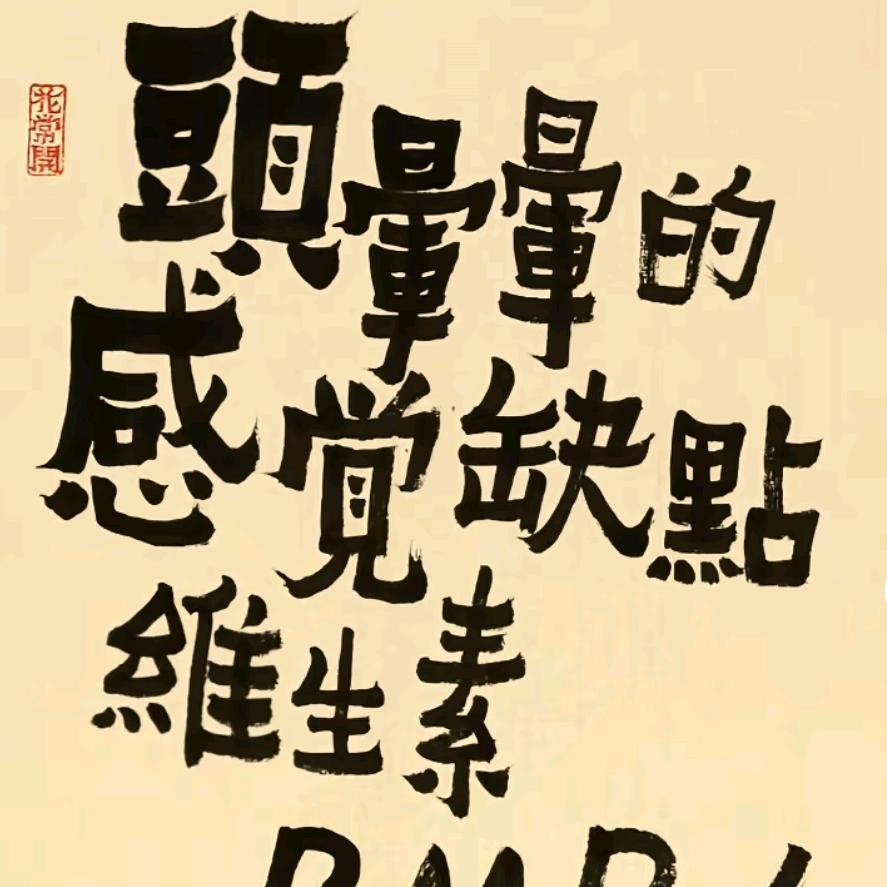 頭暈暈的
感覚缺點
維生素
花常開